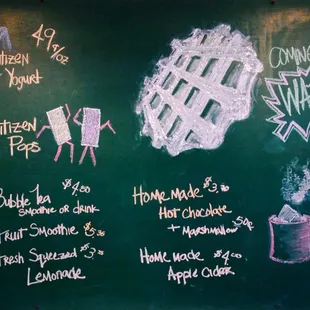 49¢/oz
Yogurt
Pops
Bubble Tea $4.00
Smoothie or drink
Fruit Smoothie
Fresh Squeezed
Lemonade
Home Made
Hot Chocolate
+ Marshmallow 50¢
Home Made $4.00
Apple Cider